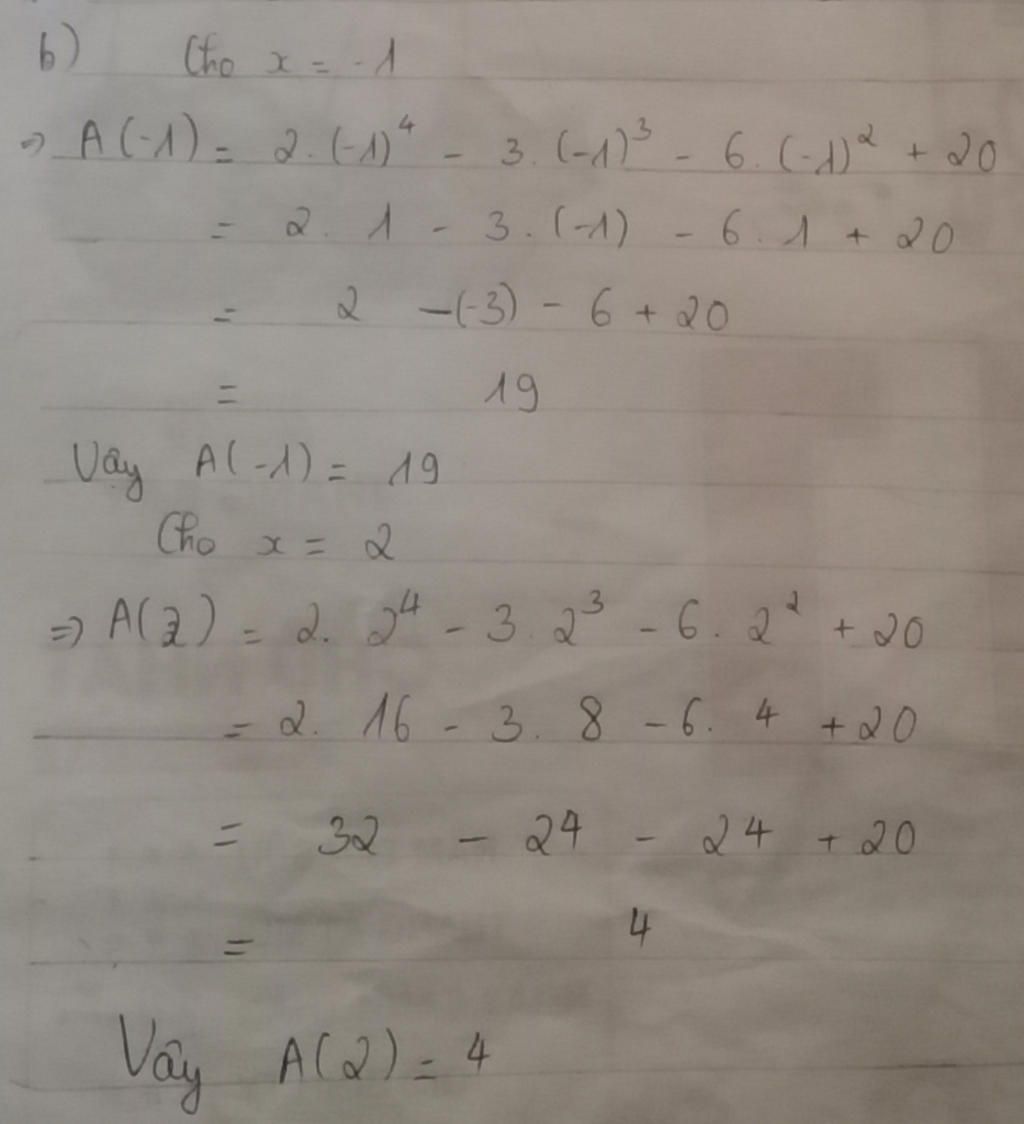 b) Cho x = -1
⇒ A(-1) = 2.(-1)⁴ - 3.(-1)³ - 6.(-1)² + 20
= 2. 1 - 3.(-1) - 6. 1 + 20
= 2 -(-3) - 6 + 20
= 19
Vậy A(-1) = 19
Cho x = 2
⇒ A(2) = 2. 2⁴ - 3. 2³ - 6. 2² + 20
= 2. 16 - 3. 8 - 6. 4 + 20
= 32 - 24 - 24 + 20
= 4
Vậy A(2) = 4